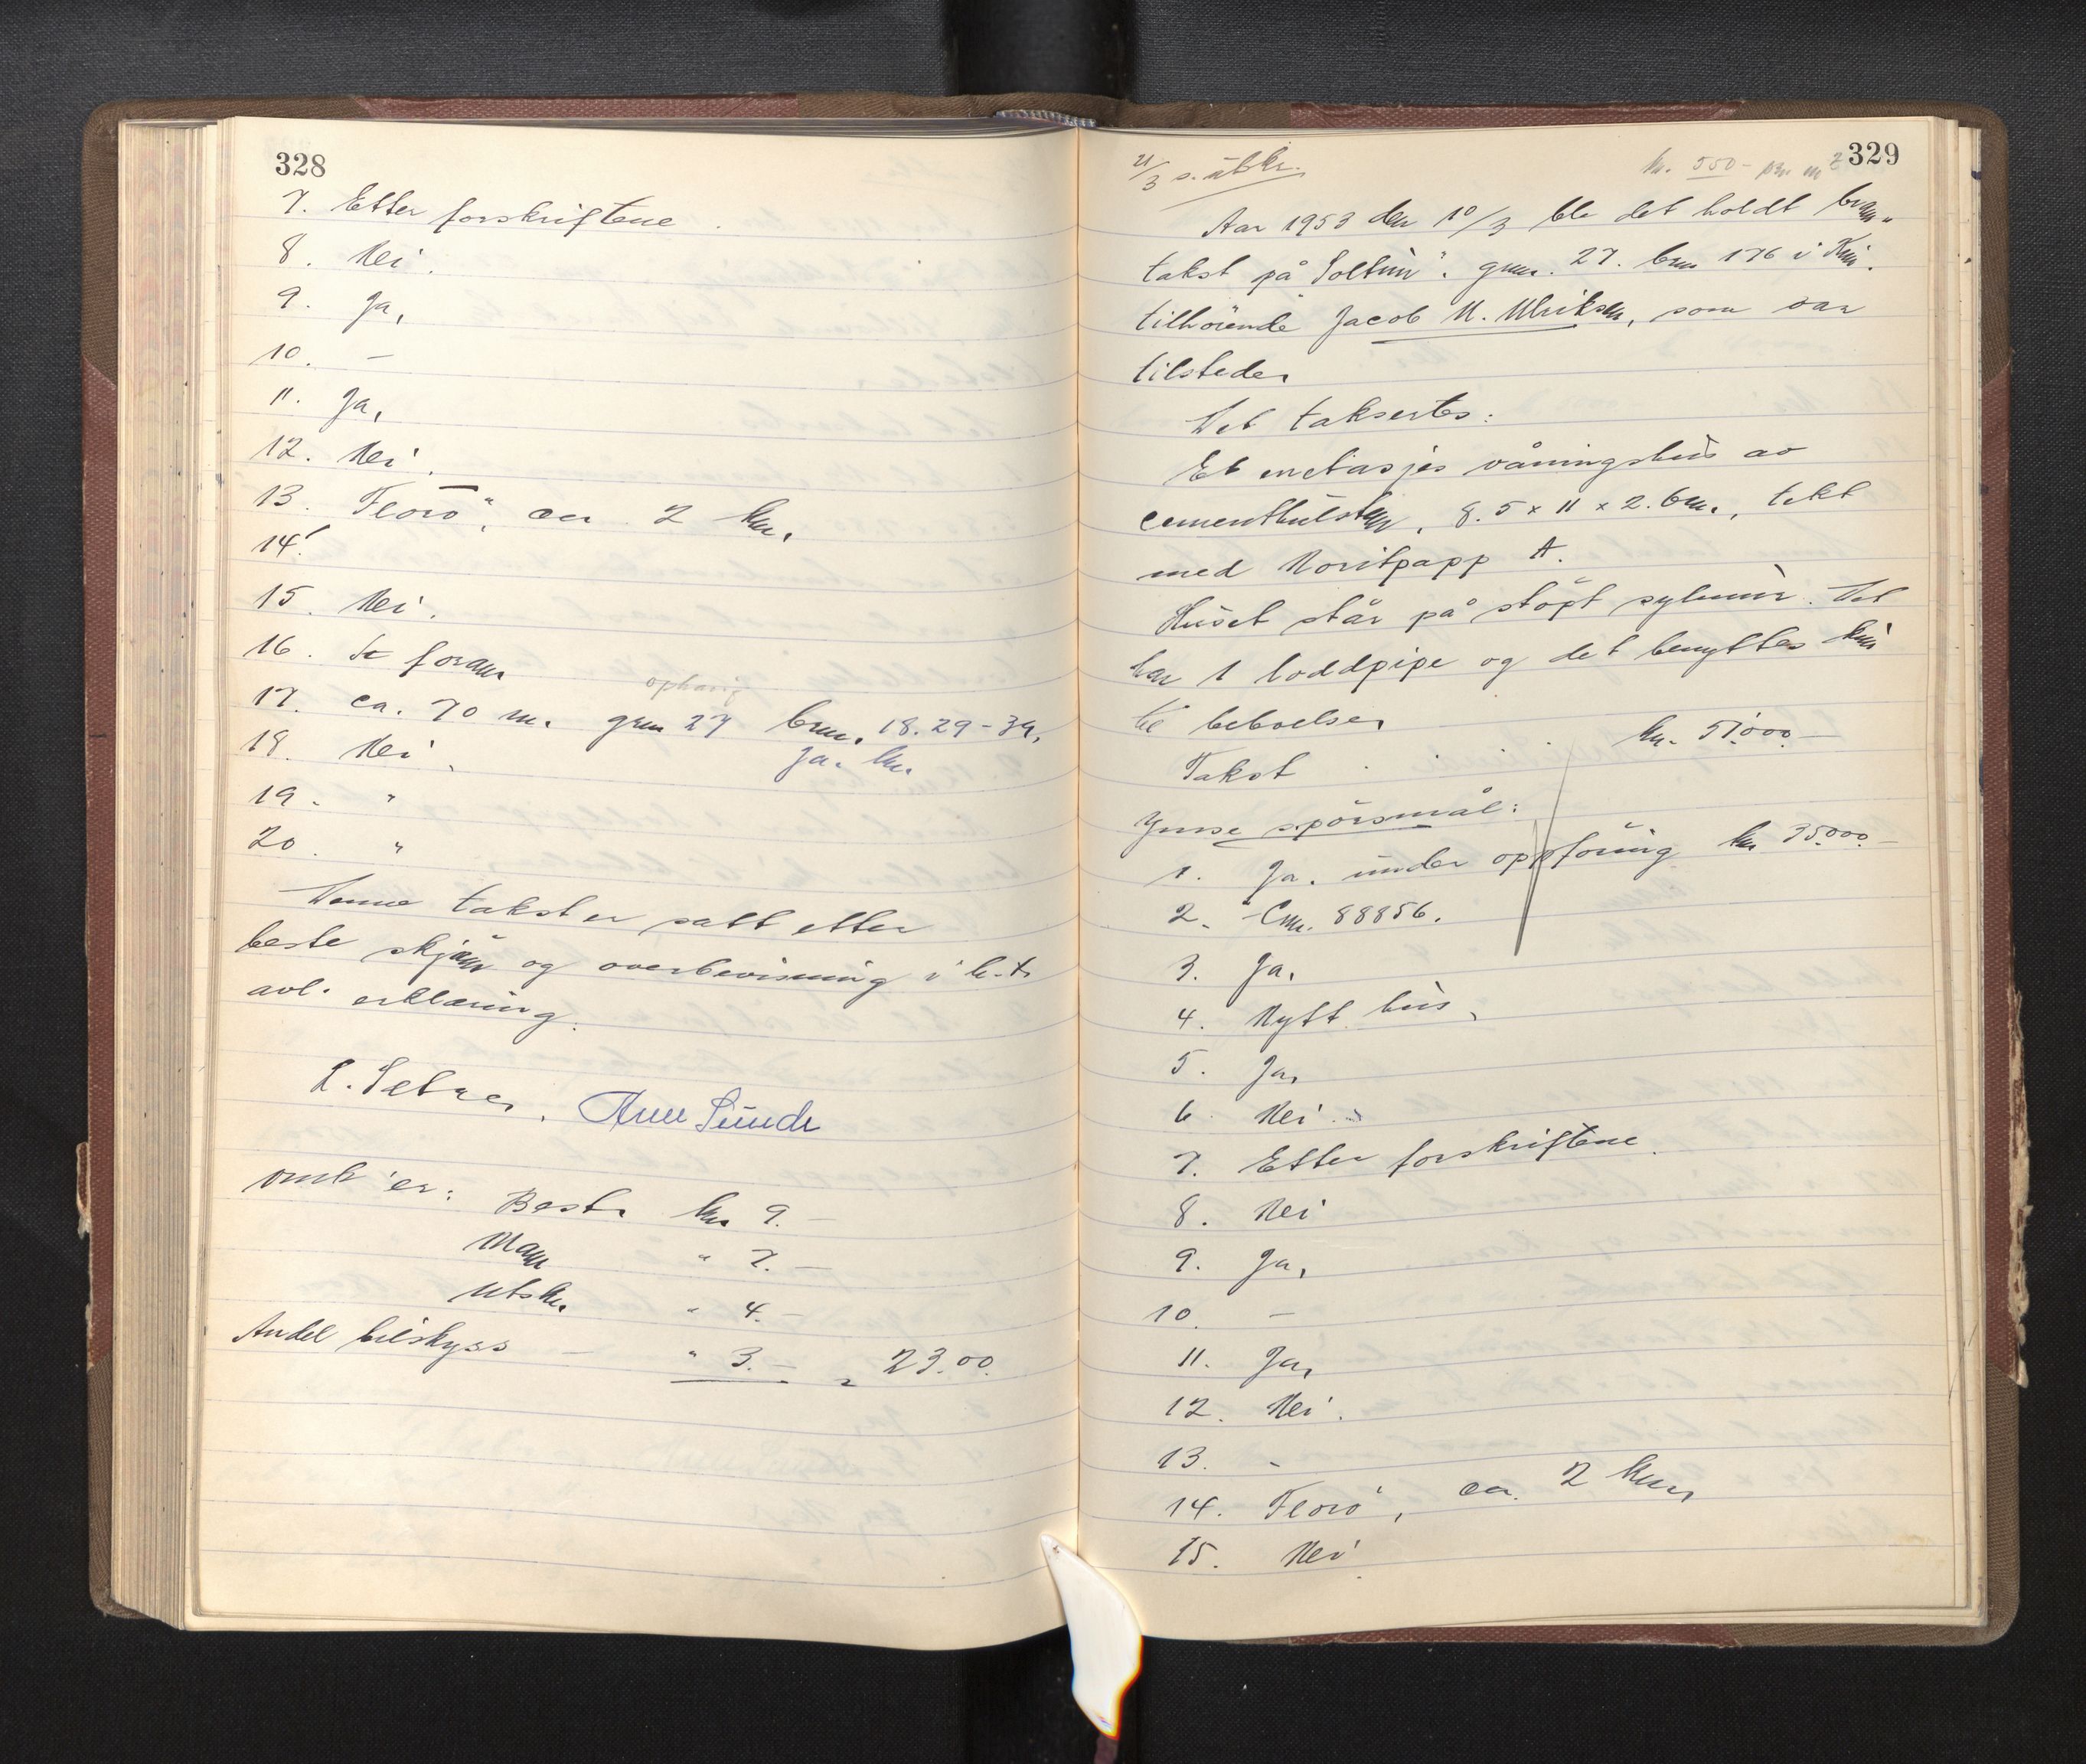 328
7. Etter forskriftene.
8. Nei.
9. Ja,
10. –
11. Ja,
12. Nei.
13. "Florø", ca. 2 km.
14.
15. Nei.
16. Se foran
17. ca. 70 m. gnr 27 bnr. 18.29-39,
18. Nei. Ja. kr.
19. "
20. "
Denne takst er satt etter
beste skjønn og overbevisning i h.t.
avl. erklæring.
L. Setre. Arne Sunde
omk'er:
Best. kr 9.–
Mann " 7.–
Utskr. " 4.–
Andel bilskyss – " 3.– " 23.00.
329
21/3 s. utskr.
kr. 550– pr. m2
Aar 1953 den 10/3 ble det holdt brann-
takst på "Soltun". gnr. 27. bnr 176 i Kinn.
tilhørende Jacob M. Ulriksen, som var
tilstede.
Det taksertes:
Et enetasjes våningshus av
cementhulsten, 8.5 x 11 x 2.6m., tekt
med Noritpapp A.
Huset står på støpt sylmur. Det
har 1 loddpipe og det benyttes kun
til beboelse.
Takst kr. 51.000.–
Ymse spørsmål:
1. Ja. under oppføring kr 35.000.–
2. Cnr. 88856.
3. Ja.
4. Nytt hus,
5. Ja,
6. Nei.
7. Etter forskriftene.
8. Nei
9. Ja,
10. –
11. Ja,
12. Nei.
13. -
14. Florø, ca. 2 km,
15. Nei.